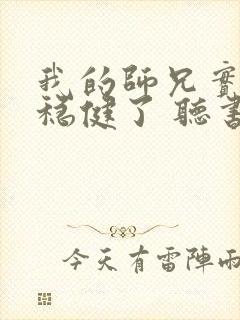 我的師兄實
穩健了 聽書
今天有雷陣雨